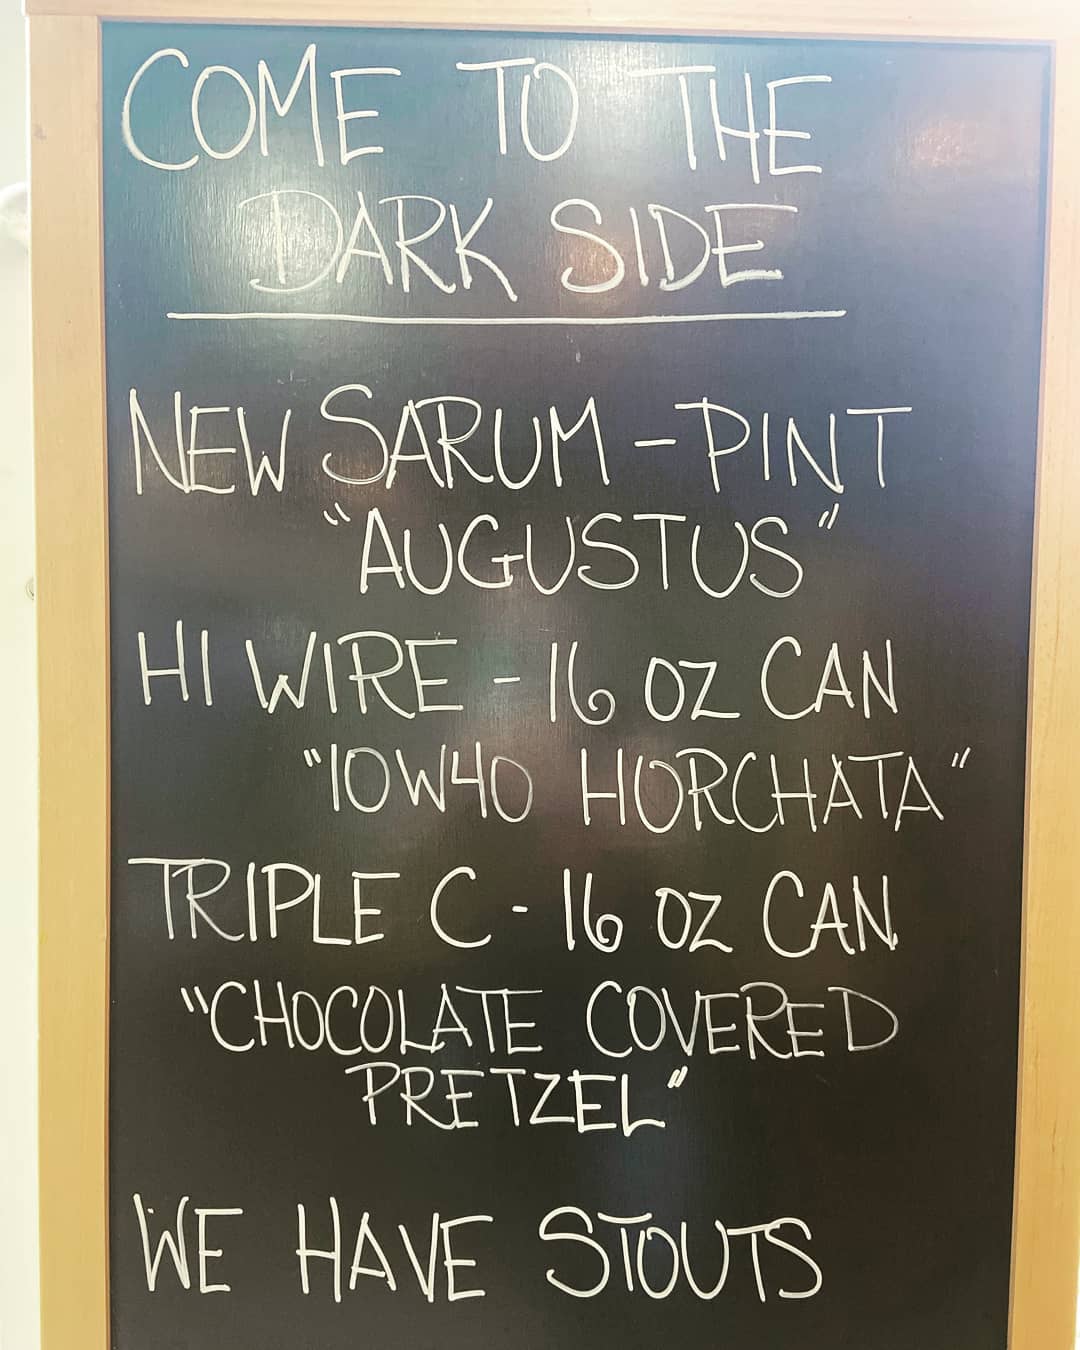 COME TO THE
DARK SIDE
NEW SARUM - PINT
"AUGUSTUS"
HI WIRE - 16 OZ CAN
"10W40 HORCHATA"
TRIPLE C - 16 OZ CAN
"CHOCOLATE COVERED
PRETZEL"
WE HAVE STOUTS